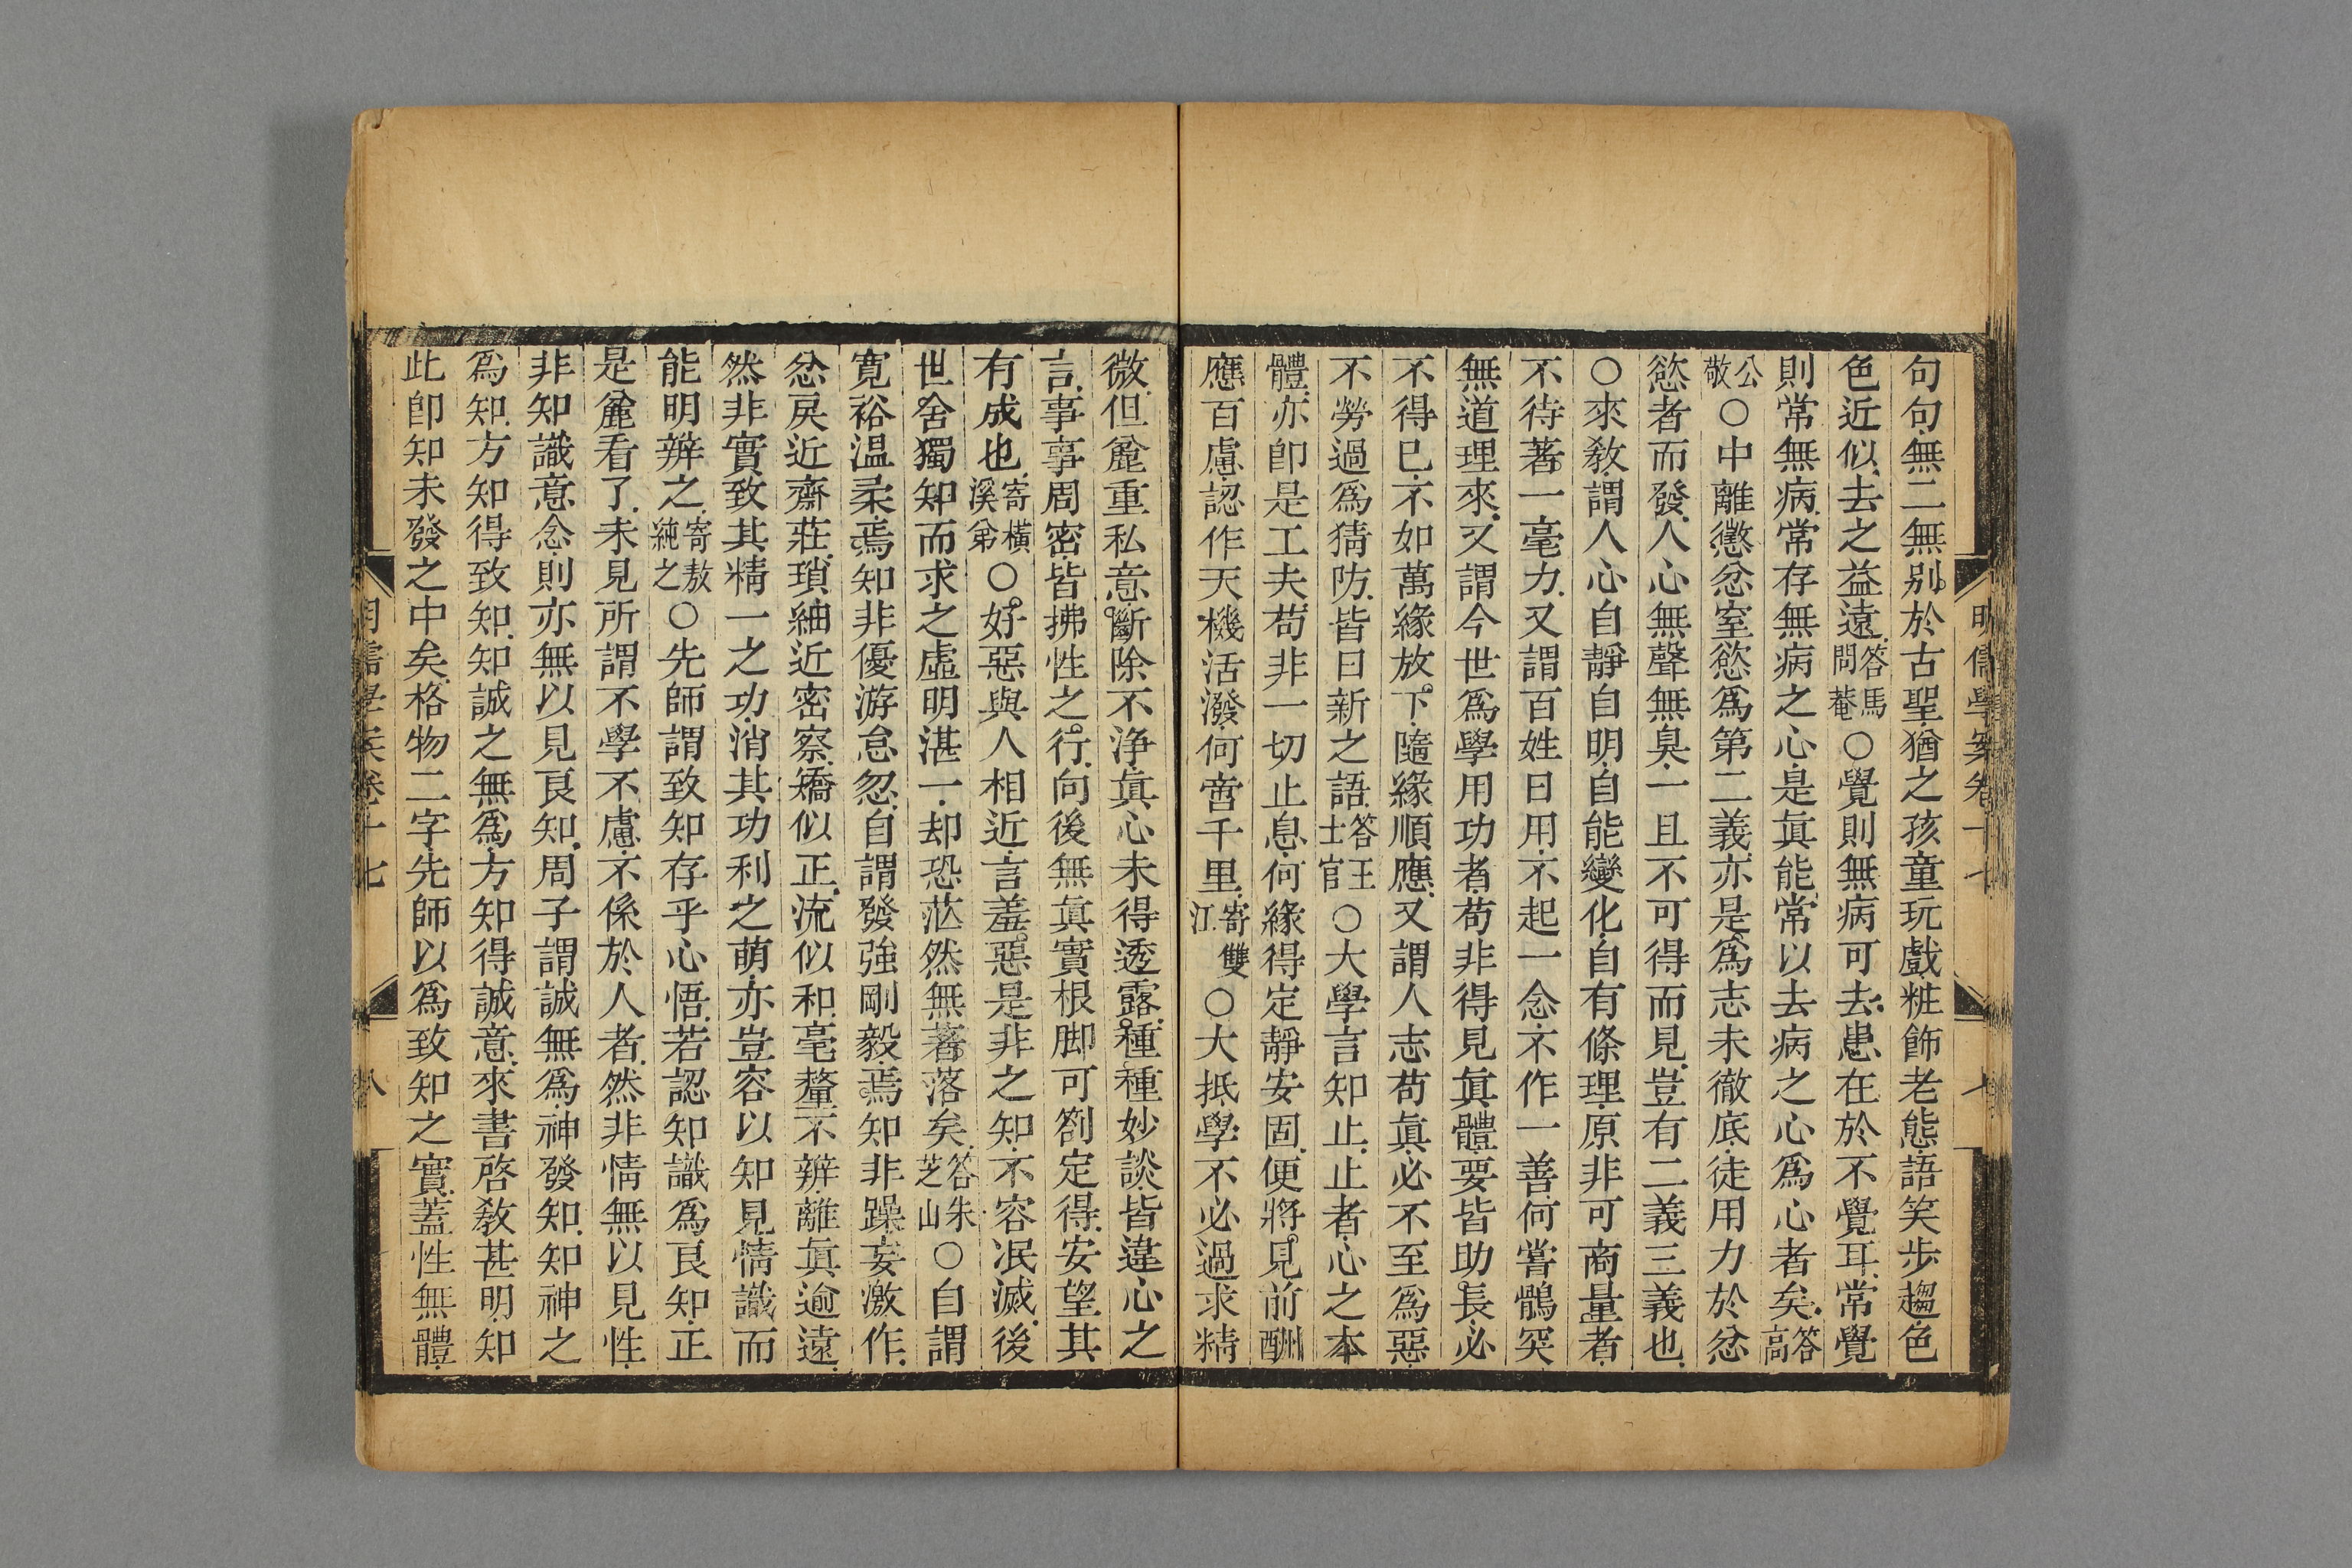 明儒學案卷十七
七
句句無二無別於古聖猶之孩童玩戲粧飾老態語笑步趨色
色近似去之益遠答馬問菴〇覺則無病可去患在於不覺耳常覺
則常無病常存無病之心是眞能常以去病之心爲心者矣答高
公敬〇中離懲忿窒慾爲第二義亦是爲志未徹底徒用力於忿
慾者而發人心無聲無臭一且不可得而見豈有二義三義也
〇來敎謂人心自靜自明自能變化自有條理原非可商量者
不待著一毫力又謂百姓日用不起一念不作一善何嘗鶻突
無道理來又謂今世爲學用功者苟非得見眞體要皆助長必
不得已不如萬緣放下隨緣順應又謂人志苟眞必不至爲惡
不勞過爲猜防皆日新之語答王士官〇大學言知止止者心之本
體亦卽是工夫苟非一切止息何緣得定靜安固便將見前酬
應百慮認作天機活潑何啻千里寄雙江〇大抵學不必過求精
微但麄重私意斷除不淨眞心未得透露種種妙談皆違心之
言事事周密皆拂性之行向後無眞實根脚可劄定得安望其
有成也寄橫溪弟〇好惡與人相近言羞惡是非之知不容泯滅後
世舍獨知而求之虛明湛一却恐茫然無著落矣答朱芝山〇自謂
寛裕温柔焉知非優游怠忽自謂發強剛毅焉知非躁妄激作
忿戾近齋莊瑣細近密察矯似正流似和毫釐不辨離眞逾遠
然非實致其精一之功消其功利之萌亦豈容以知見情識而
能明辨之寄敖純之〇先師謂致知存乎心悟若認知識爲良知正
是麄看了未見所謂不學不慮不係於人者然非情無以見性
非知識意念則亦無以見良知周子謂誠無爲神發知知神之
爲知方知得致知知誠之無爲方知得誠意來書啓敎甚明知
此卽知未發之中矣格物二字先師以爲致知之實蓋性無體
明儒學案卷十七
八